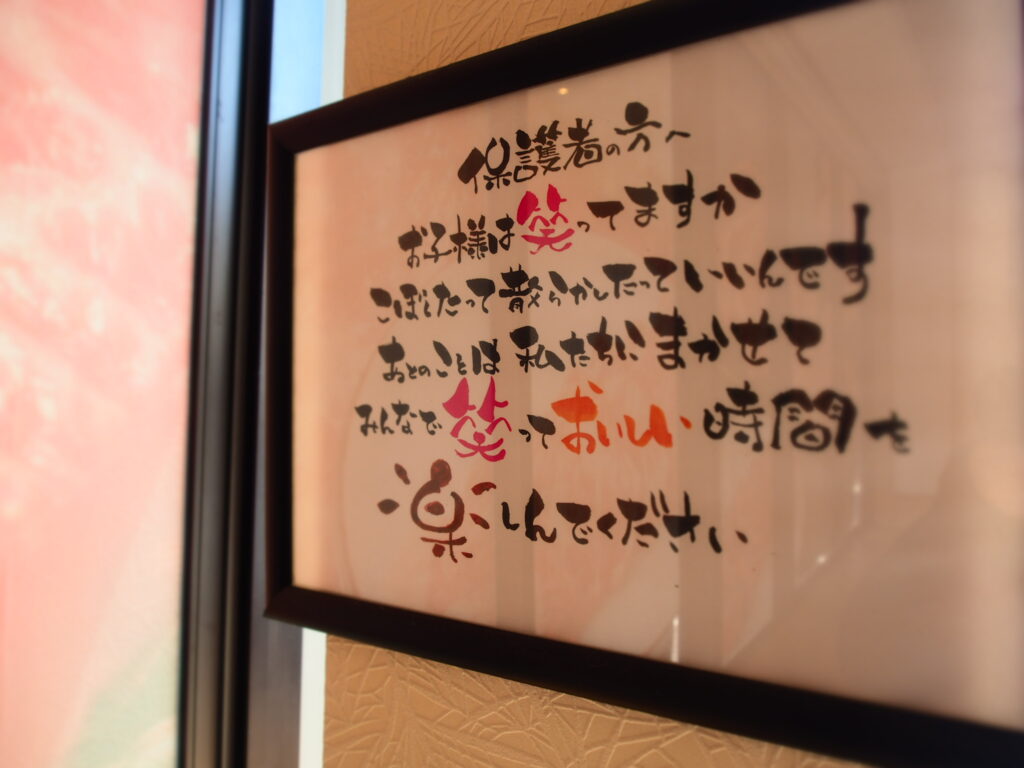 保護者の方へ
お子様は笑ってますか
こぼしたって散らかしたっていいんです
あとのことは私たちにまかせて
みんなで笑っておいしい時間を
楽しんでください